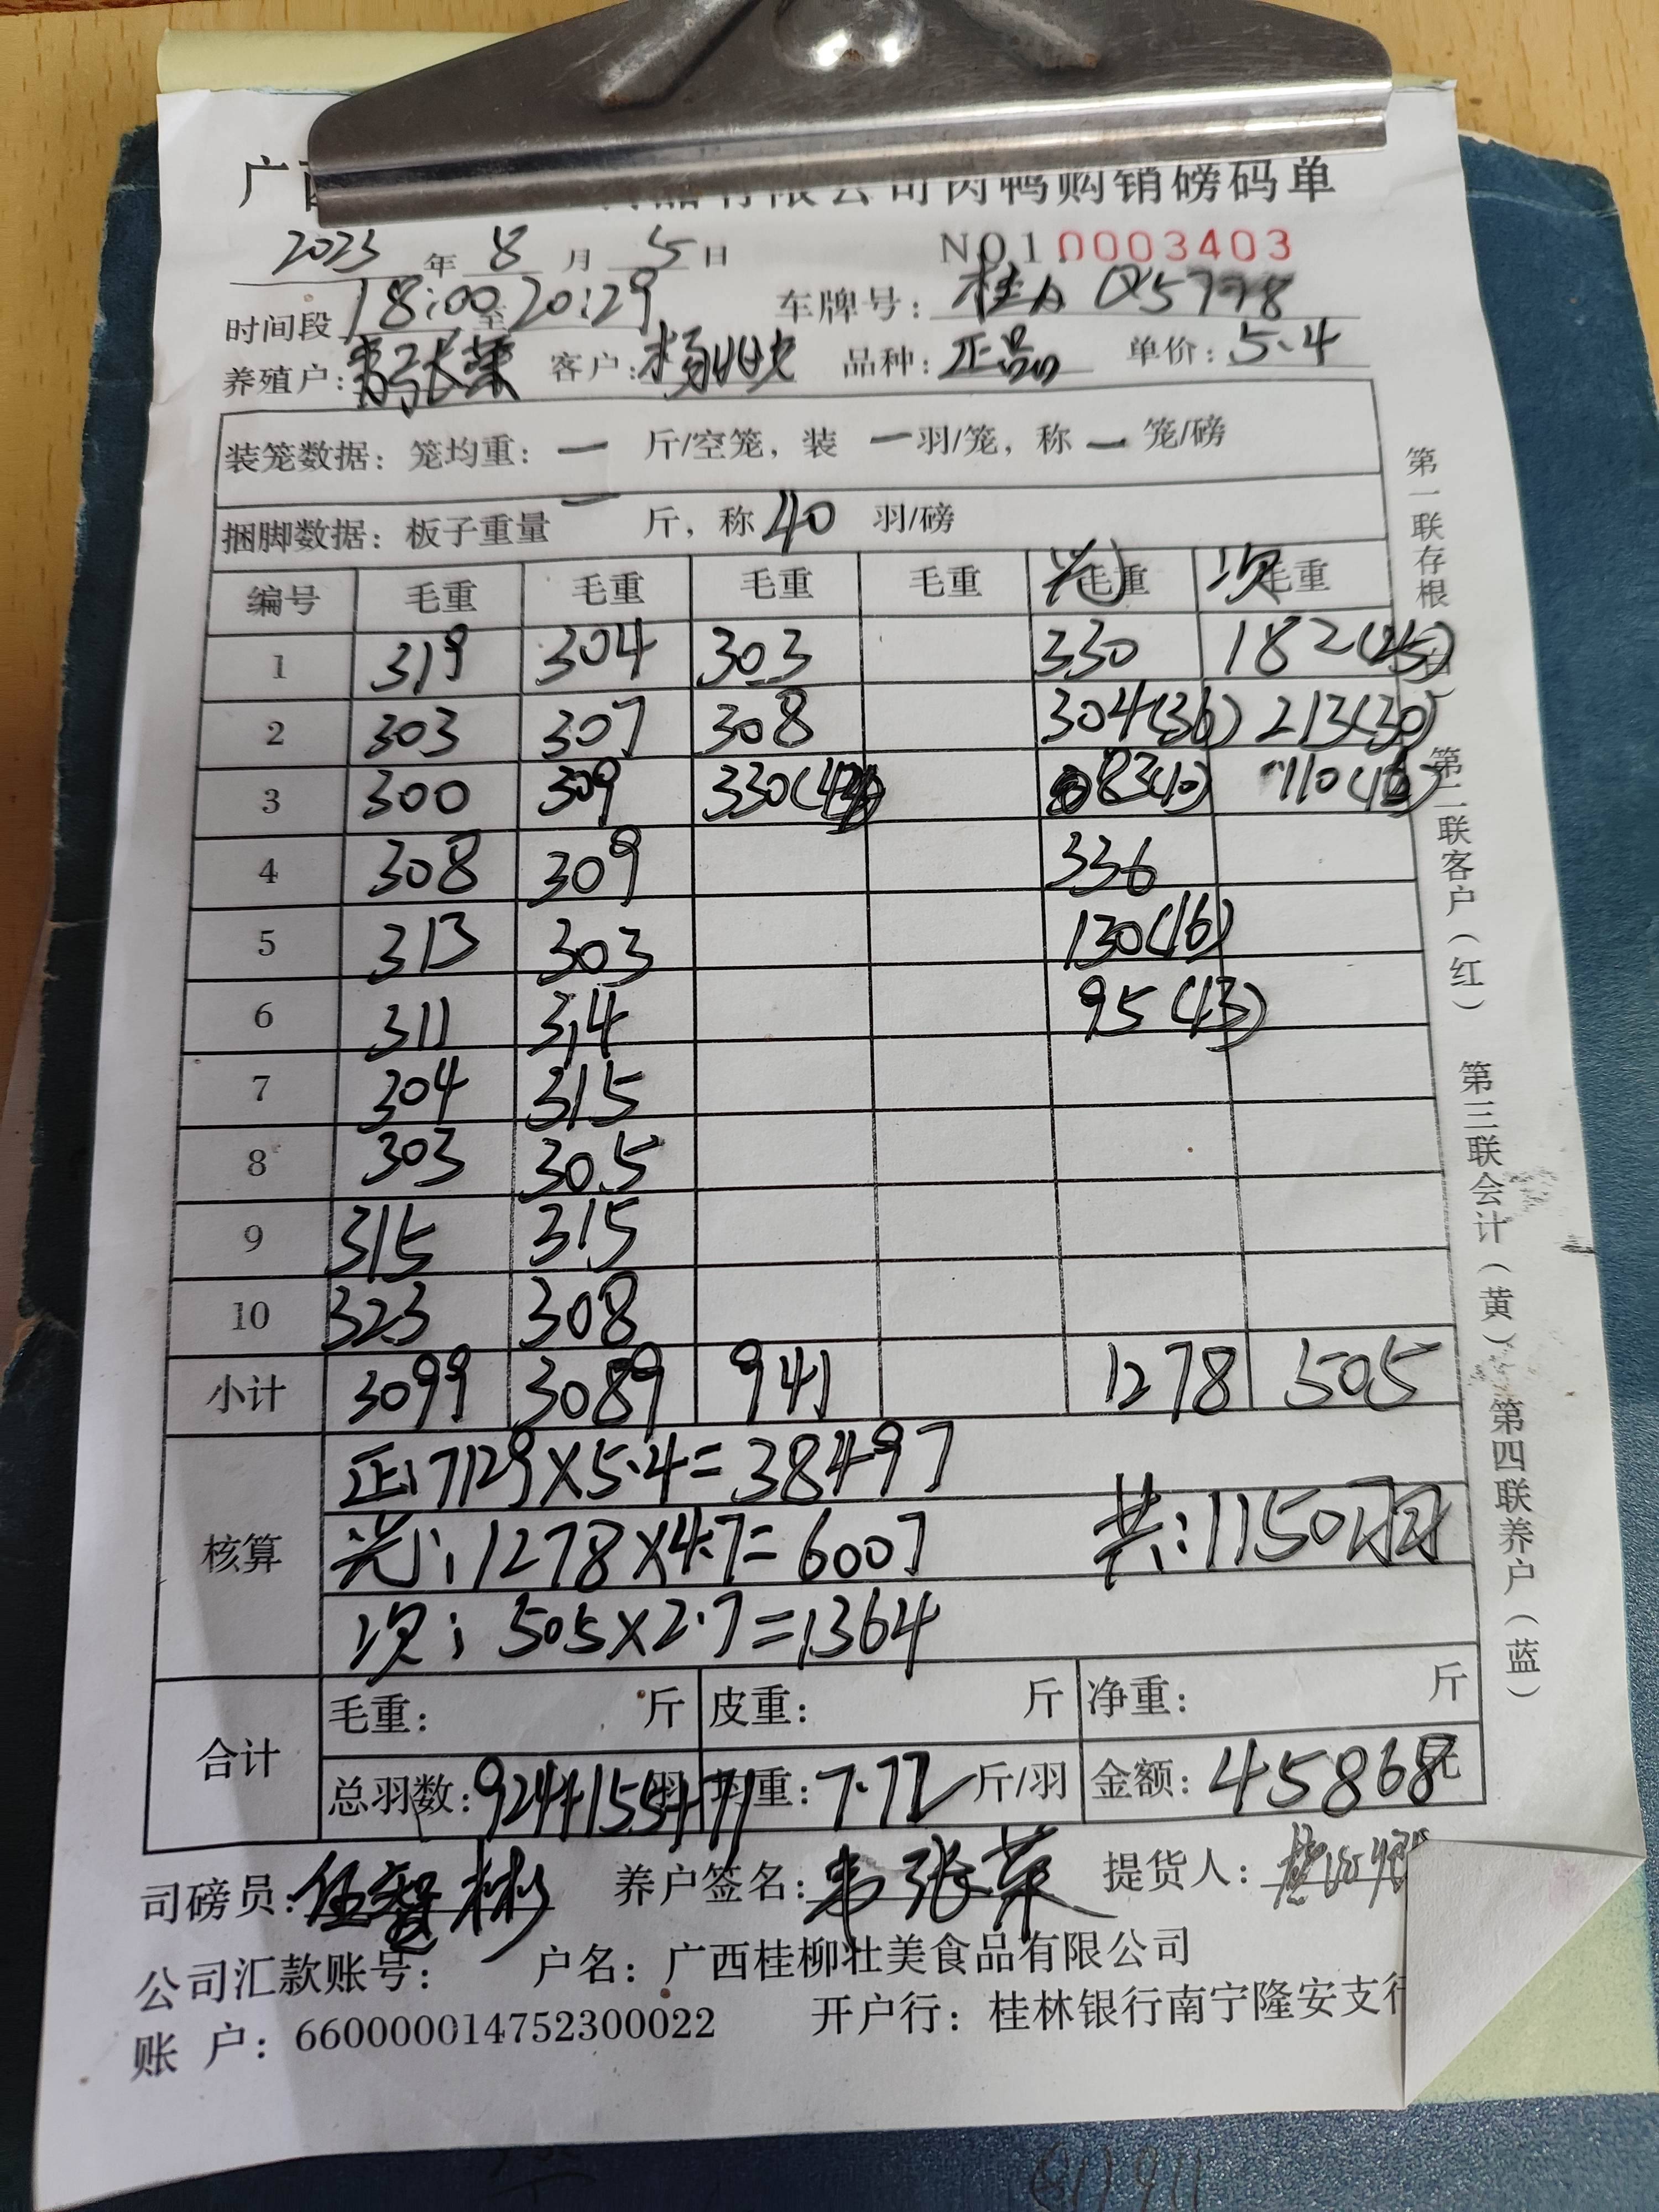 广西 食品有限公司肉鸭购销磅码单
2023 年 8 月 5 日 NO10003403
时间段 18:00 至 20:29 车牌号: 桂A Q5778
养殖户: 韦张荣 客户: 品种: 正品 单价: 5.4
装笼数据: 笼均重: — 斤/空笼, 装 — 羽/笼, 称 — 笼/磅
捆脚数据: 板子重量 — 斤, 称 40 羽/磅
编号 毛重 毛重 毛重 毛重 光 毛重 次 毛重
1 319 304 303 330 182(25)
2 303 307 308 304(36) 213(30)
3 300 309 330 83(10) 110(16)
4 308 309 336
5 313 303 130(16)
6 311 314 95(13)
7 304 315
8 303 305
9 315 315
10 323 308
小计 3099 3089 941 1278 505
核算 正:7129×5.4=38497
光:1278×4.7=6007 共:1150羽
次:505×2.7=1364
合计 毛重: 斤 皮重: 斤 净重: 斤
总羽数: 924+155+71 羽 羽重: 7.72 斤/羽 金额: 45868 元
司磅员: 伍智彬 养户签名: 韦张荣 提货人:
公司汇款账号: 户名: 广西桂柳壮美食品有限公司
账 户: 660000014752300022 开户行: 桂林银行南宁隆安支行
第一联存根(白) 第二联客户(红) 第三联会计(黄) 第四联养户(蓝)